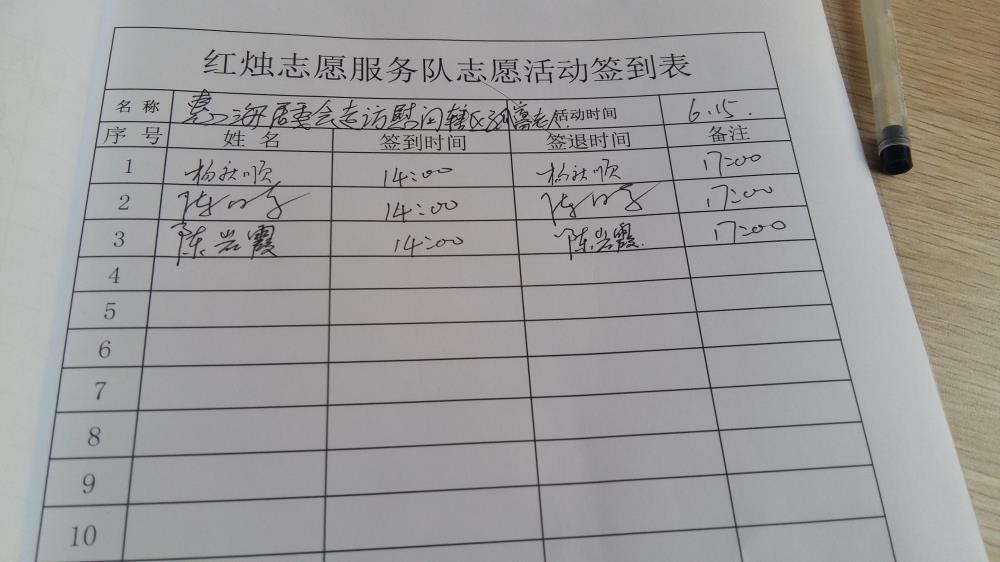 红烛志愿服务队志愿活动签到表
名称 海居委会走访慰问辖区孤寡老人. 活动时间 6.15.
序号 姓名 签到时间 签退时间 备注
1 杨秋顺 14:00 杨秋顺 17:00
2 陈 14:00 陈 17:00
3 陈岩霞 14:00 陈岩霞. 17:00
4
5
6
7
8
9
10